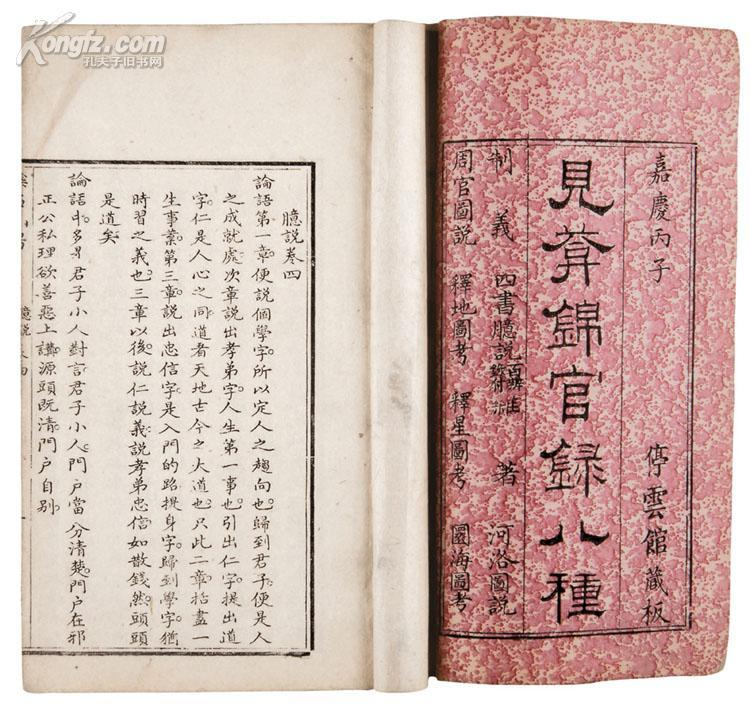 Kongfz.com
孔夫子旧书网
嘉慶丙子
停雲館藏板
見葊錦官録八種
制義 四書臆說 著 河洛圖說
周官圖說 釋地圖考 釋星圖考 圜海圖考
臆說卷四
論語第一章便說個學字所以定人之趨向也歸到君子便是人
之成就處次章說出孝弟字人生第一事也引出仁字提出道
字仁是人心之同道者天地古今之大道也只此二章括盡一
生事業第三章說出忠信字是入門的路提身字歸到學字猶
時習之義也三章以後說仁說義說孝弟忠信如散錢然頭頭
是道矣
論語中多君子小人對言君子小人門戶當分清楚門戶在邪
正公私理欲善惡上講源頭既清門戶自別
臆說 四